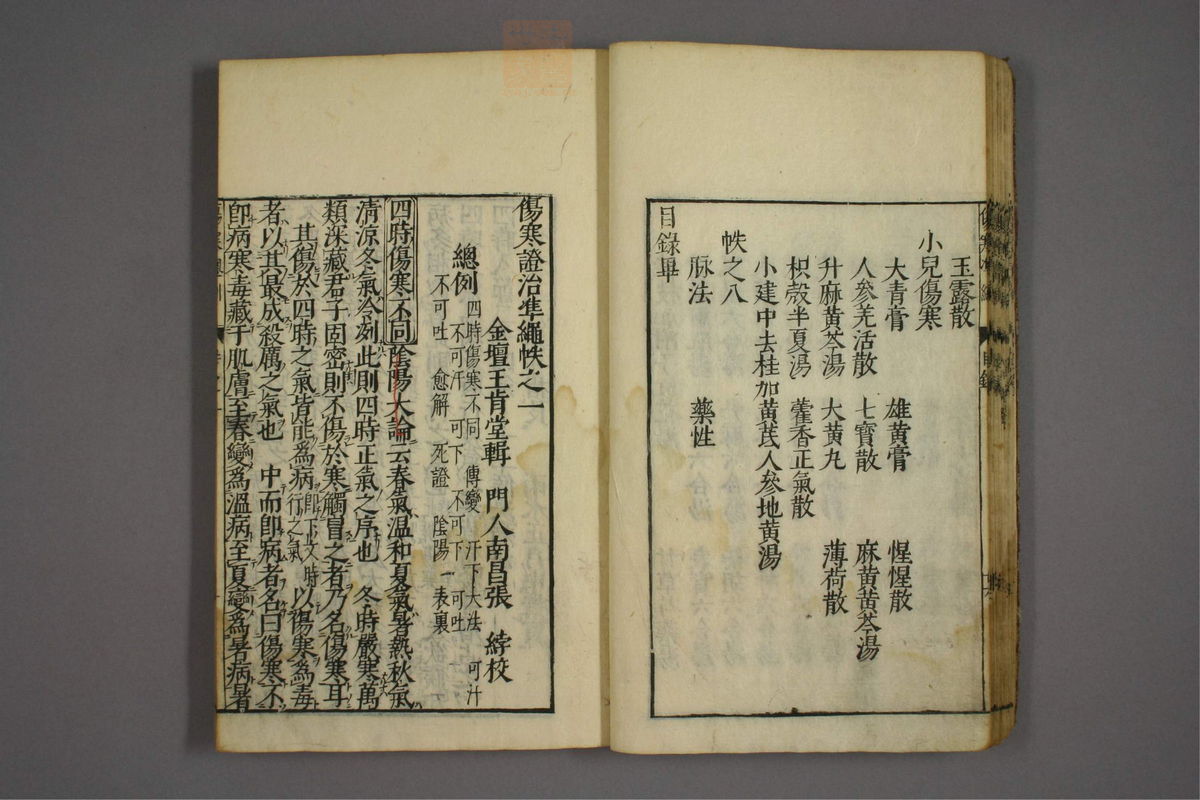 玉露散
小兒傷寒
大青膏 雄黃膏 惺惺散
人參羌活散 七寶散 麻黃黃芩湯
升麻黃芩湯 大黃丸 薄荷散
枳殼半夏湯 藿香正氣散
小建中去桂加黃芪人參地黃湯
帙之八
脉法 藥性
目錄畢
傷寒證治準繩帙之一
金壇王肯堂輯 門人南昌張 綍校
總例 四時傷寒不同 傳變 汗下大法 可汗
不可汗 可下 不可下 可吐
不可吐 愈解 死證 陰陽 表裏
四時傷寒不同 陰陽大論云春氣溫和夏氣暑熱秋氣
清凉冬氣冷冽此則四時正氣之序也 冬時嚴寒萬
類深藏君子固密則不傷於寒觸冒之者乃名傷寒耳
其傷於四時之氣皆能爲病 即下文時行之氣 以傷寒爲毒
者以其最成殺厲之氣也 中而即病者名曰傷寒不
即病寒毒藏于肌膚至春變爲溫病至夏變爲暑病暑